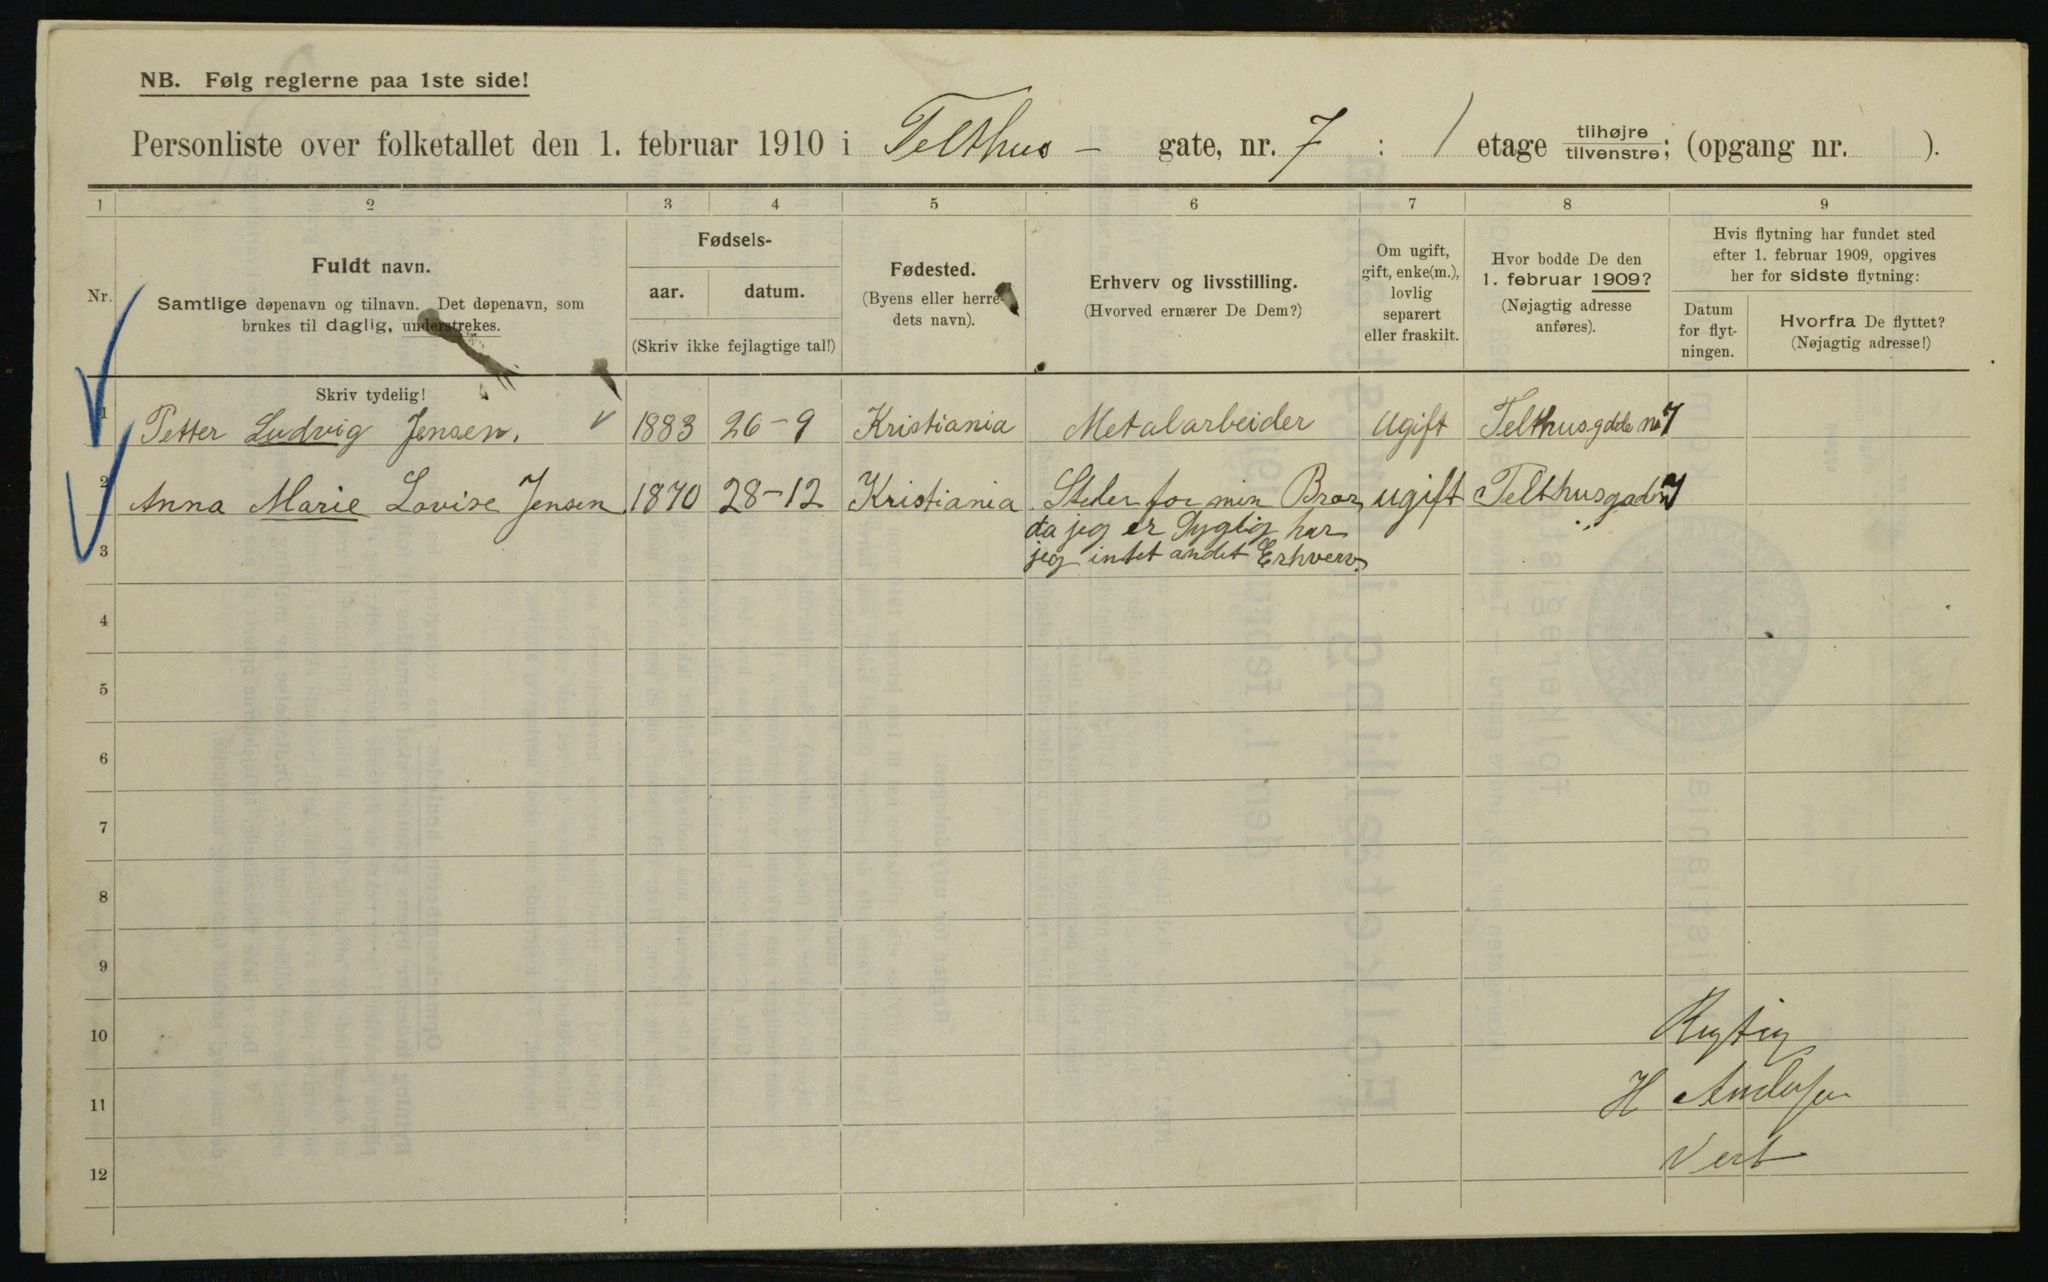 NB. Følg reglerne paa 1ste side!
Personliste over folketallet den 1. februar 1910 i Telthus – gate, nr. 7 : 1 etage tilhøjre tilvenstre; (opgang nr. ).
1 2 3 4 5 6 7 8 9
Nr.
Fuldt navn.
Samtlige døpenavn og tilnavn. Det døpenavn, som
brukes til daglig, understrekes.
Skriv tydelig!
Fødsels-
aar. datum.
(Skriv ikke fejlagtige tal!)
Fødested.
(Byens eller herre-
dets navn).
Erhverv og livsstilling.
(Hvorved ernærer De Dem?)
Om ugift,
gift, enke(m.),
lovlig
separert
eller fraskilt.
Hvor bodde De den
1. februar 1909?
(Nøjagtig adresse
anføres).
Hvis flytning har fundet sted
efter 1. februar 1909, opgives
her for sidste flytning:
Datum
for flyt-
ningen.
Hvorfra De flyttet?
(Nøjagtig adresse!)
1 Petter Ludvig Jensen. 1883 26-9 Kristiania Metalarbeider Ugift Telthusgdde no 7
2 Anna Marie Lovise Jensen 1870 28-12 Kristiania Steler for min Bror ugift Telthusgad 7
da jeg er Sygelig har
3 jeg intet andet Erhverv.
4
5
6
7
8
9
10 Rigtig
11 H Andersen
12 Vert